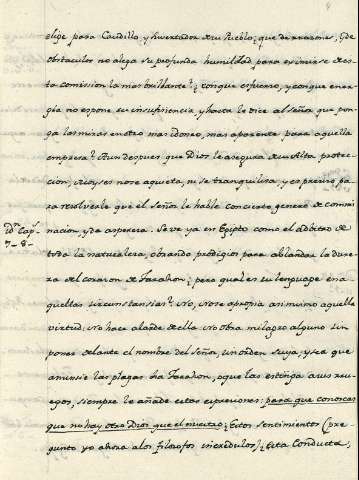 elige para Caudillo, y livertador de su Pueblo; que de razones, ¿de
obstaculos no alega su profunda humildad para eximirse de es-
ta comision la mas brillante? ¿conque esfuerzo, y conque ener-
gia no espone su insuficiencia, y hasta le dice al señor que pon-
ga las miras en otro mas idoneo, mas aparente para aquella
empresa? Aun despues que Dios le asegura de su Alta protec-
cion, Moyses no se aquieta, ni se tranquiliza, y es preciso pa
ra resolverle que el Señor le hable con cierto genero de commi
nacion, y de aspereza. Se ve ya en Egipto como el adbitro de
toda la naturaleza, obrando prodigios para ablandar la dure-
za del corazon de Farahon; ¿pero qual es su lenguage en a
quellas circunstansias? No, No se apropia asi mismo aquella
virtud. No hace alarde de ella No obra milagro alguno sin
poner delante el nombre del Señor, un orden suya, y sea que
anuncie las plagas ha Faraon, o que las estinga a sus rue-
gos, siempre le añade estas expresiones: para que conozcas
que no hay otro Dios que el nuestro ¿Estos sentimientos (pre-
gunto yo ahora a los filosofos incredulos) ¿Esta Conducta,
Idn. Cap.s
7- 8-